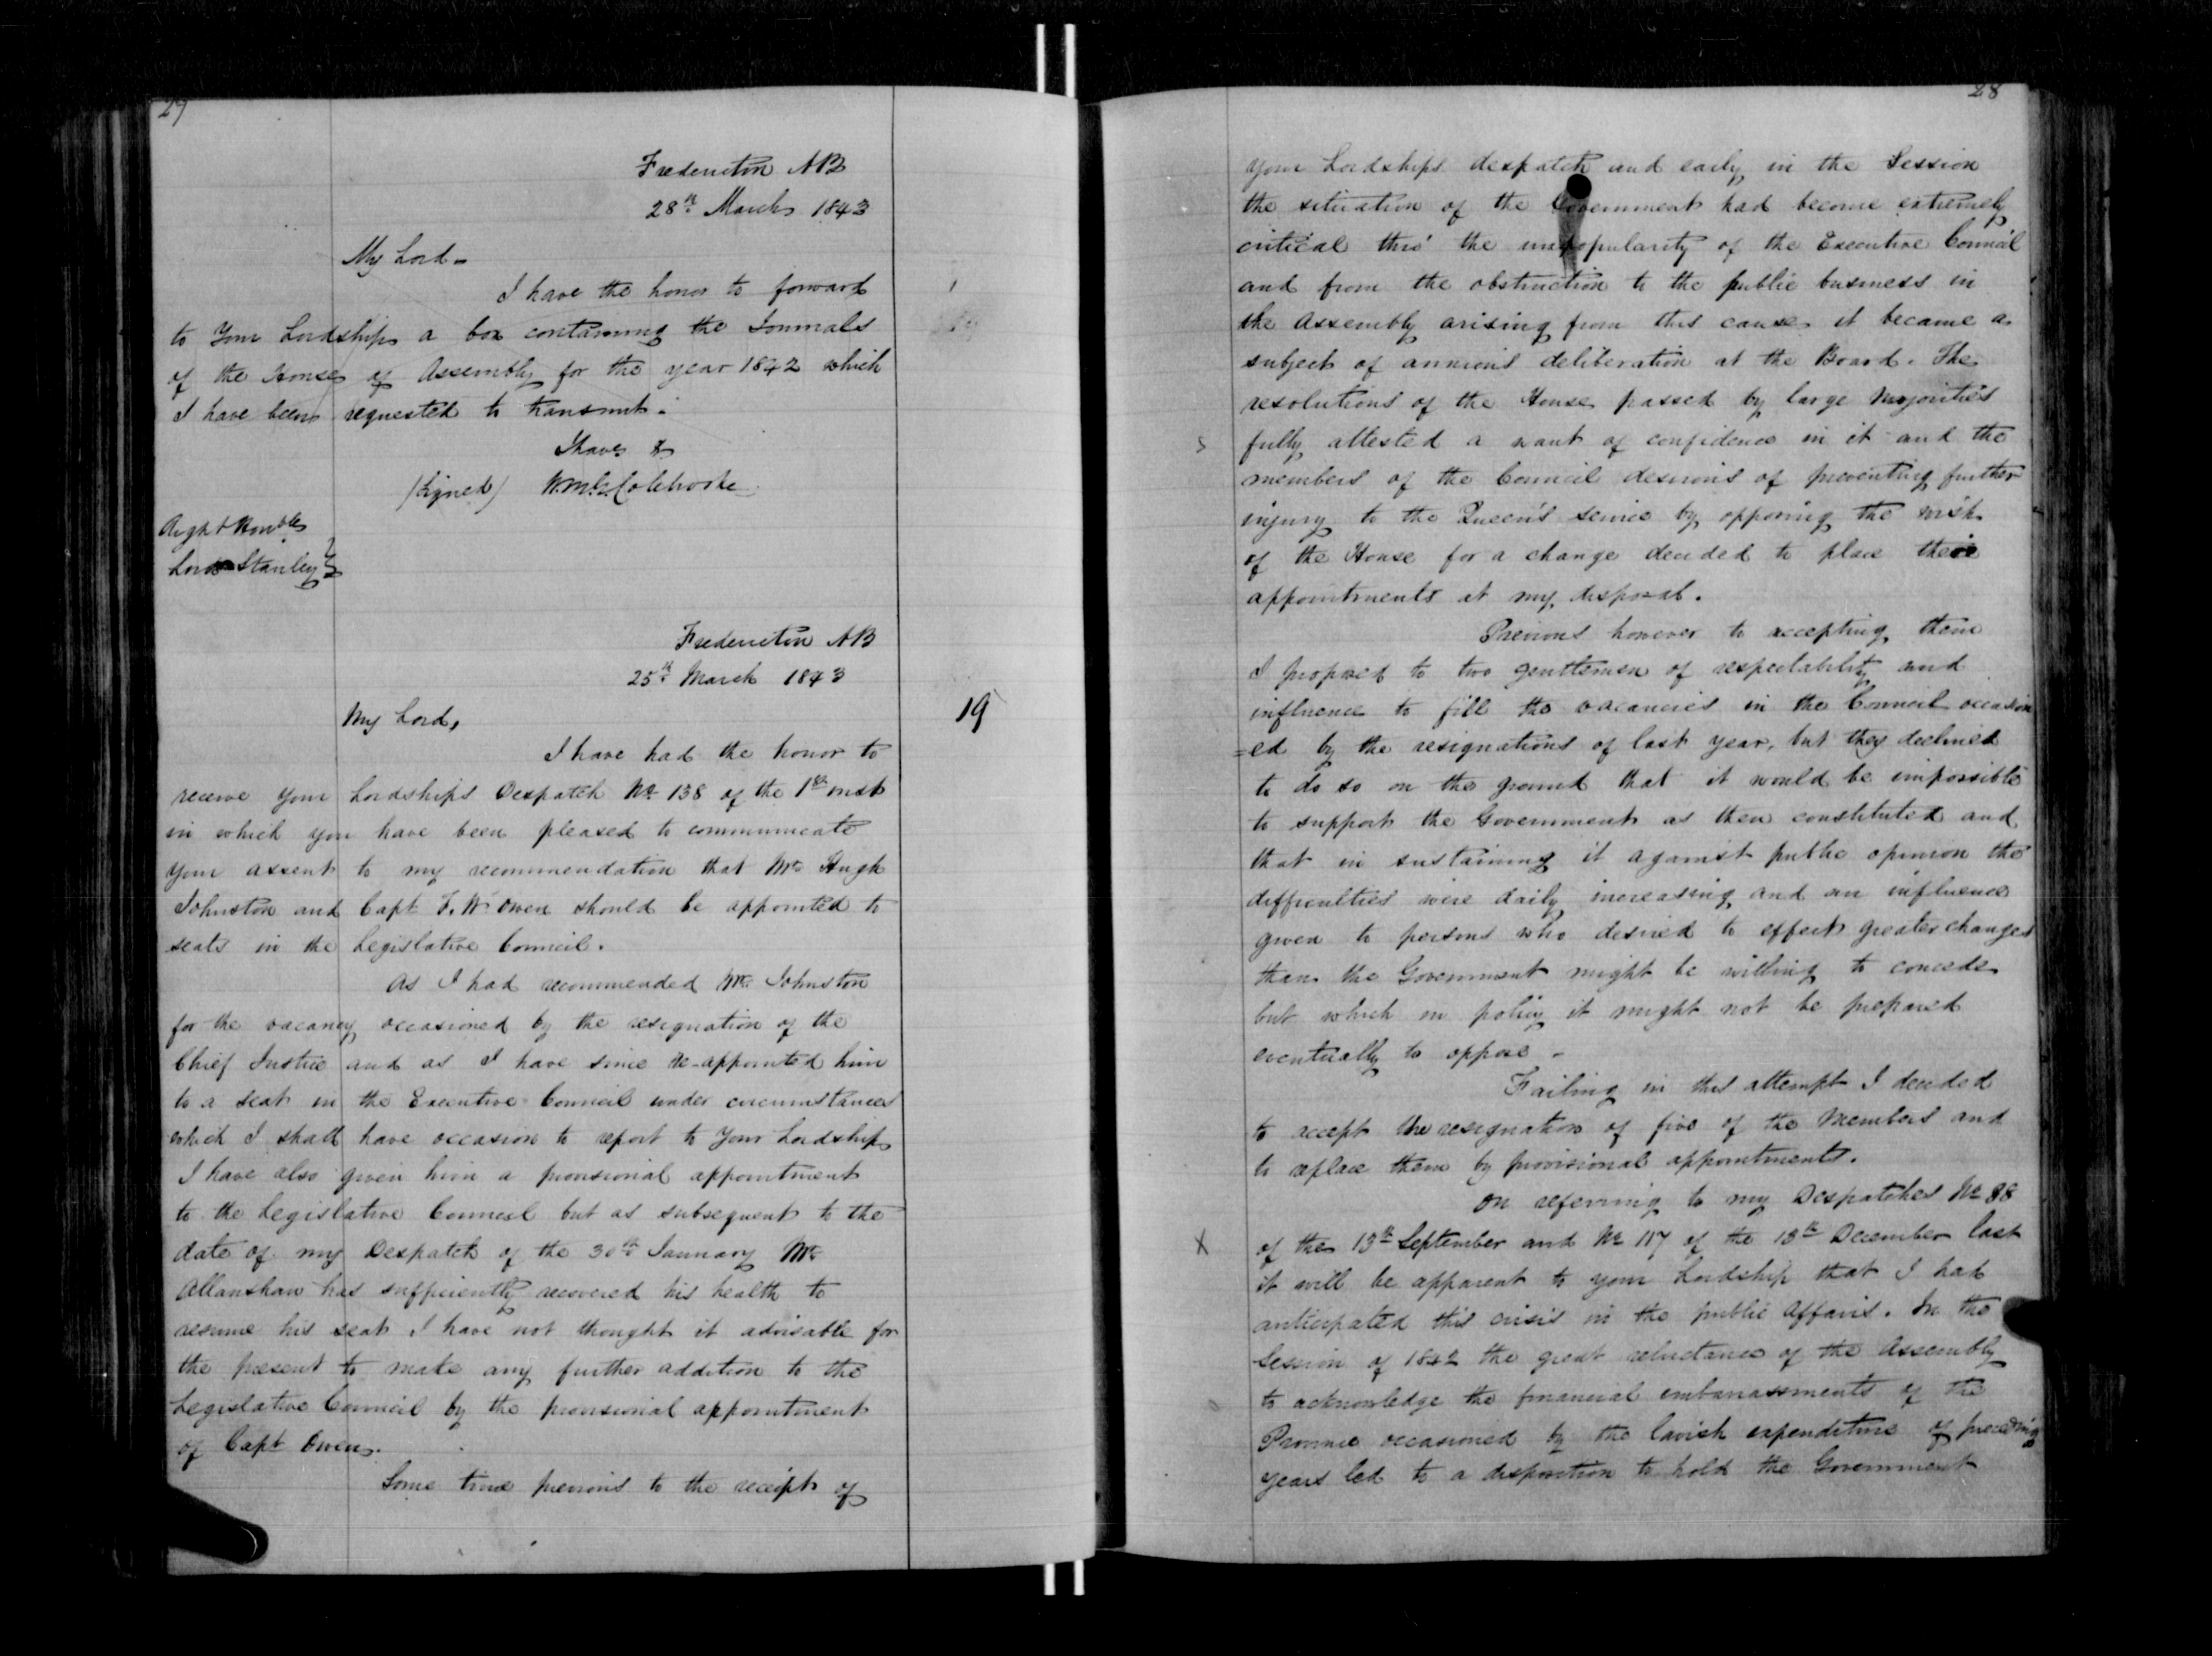 29
Fredericton NB
28th March 1843
My Lord-
I have the honor to forward
to Your Lordship a box containing the Journals
of the House of Assembly for the year 1842 which
I have been requested to transmit.
I have &
(Signed) W.M.G. Colebrooke
Right Honble
Lord Stanley
Fredericton NB
25th March 1843
19
My Lord,
I have had the honor to
receive your Lordships Despatch No 138 of the 1st inst
in which you have been pleased to communicate
your assent to my recommendation that Mr Hugh
Johnston and Capt F. W. Owen should be appointed to
seats in the Legislative Council.
As I had recommended Mr Johnston
for the vacancy occasioned by the resignation of the
Chief Justice and as I have since re-appointed him
to a seat in the Executive Council under circumstances
which I shall have occasion to report to Your Lordship
I have also given him a provisional appointment
to the Legislative Council but as subsequent to the
date of my Despatch of the 30th January Mr
Allanshaw has sufficiently recovered his health to
resume his seat I have not thought it advisable for
the present to make any further addition to the
Legislative Council by the provisional appointment
of Capt Owen.
Some time previous to the receipt of
28
your Lordships despatch and early in the Session
the situation of the Government had become extremely
critical thro' the unpopularity of the Executive Council
and from the obstruction to the public business in
the Assembly arising from this cause it became a
subject of anxious deliberation at the Board. The
resolutions of the House passed by large Majorities
fully attested a want of confidence in it and the
members of the Council desirous of preventing further
injury to the Queen's service by opposing the wish
of the House for a change decided to place their
appointments at my disposal.
Previous however to accepting them
I proposed to two gentlemen of respectability and
influence to fill the vacancies in the Council occasion
=ed by the resignations of last year, but they declined
to do so on the ground that it would be impossible
to support the Government as then constituted and
that in sustaining it against public opinion the
difficulties were daily increasing and an influence
given to persons who desired to effect greater changes
than the Government might be willing to concede
but which in policy it might not be prepared
eventually to oppose -
Failing in this attempt I decided
to accept the resignation of five of the Members and
to replace them by provisional appointments.
On referring to my Despatches No 88
X
of the 13th September and No 117 of the 13th December last
it will be apparent to your Lordship that I had
anticipated this crisis in the public Affairs. In the
Session of 1842 the great reluctance of the Assembly
to acknowledge the financial embarrassments of the
Province occasioned by the lavish expenditure of preceding
years led to a disposition to hold the Government